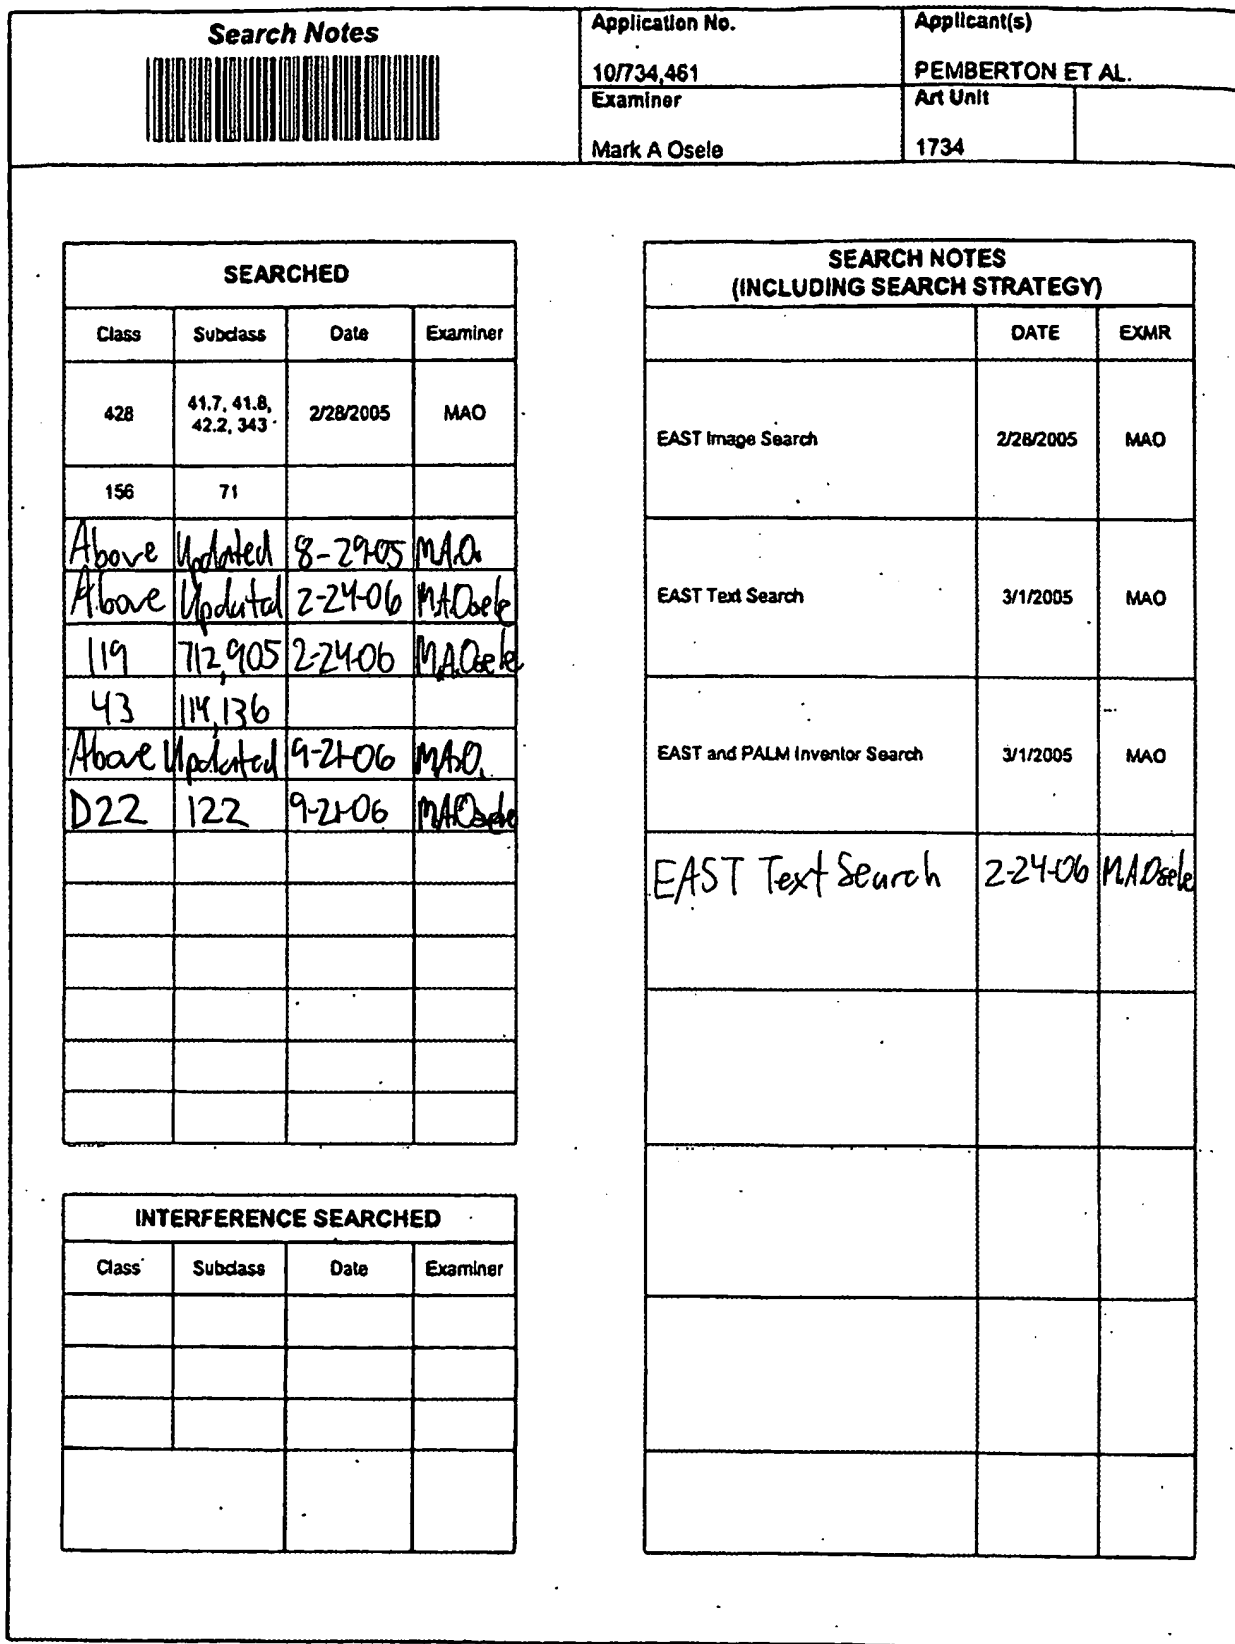 Search Notes
Application No.
10/734,461
Applicant(s)
PEMBERTON ET AL.
Examiner
Mark A Osele
Art Unit
1734
SEARCHED
Class Subclass Date Examiner
428 41.7, 41.8, 42.2, 343 2/28/2005 MAO
156 71
Above Updated 8-29-05 M.A.O.
Above Updated 2-24-06 M.A.Osele
119 712,905 2-24-06 M.A.Osele
43 114,136
Above Updated 9-21-06 M.A.O.
D22 122 9-21-06 M.A.Osele
INTERFERENCE SEARCHED
Class Subclass Date Examiner
SEARCH NOTES
(INCLUDING SEARCH STRATEGY)
DATE EXMR
EAST Image Search 2/28/2005 MAO
EAST Text Search 3/1/2005 MAO
EAST and PALM Inventor Search 3/1/2005 MAO
EAST Text Search 2-24-06 M.A.Osele